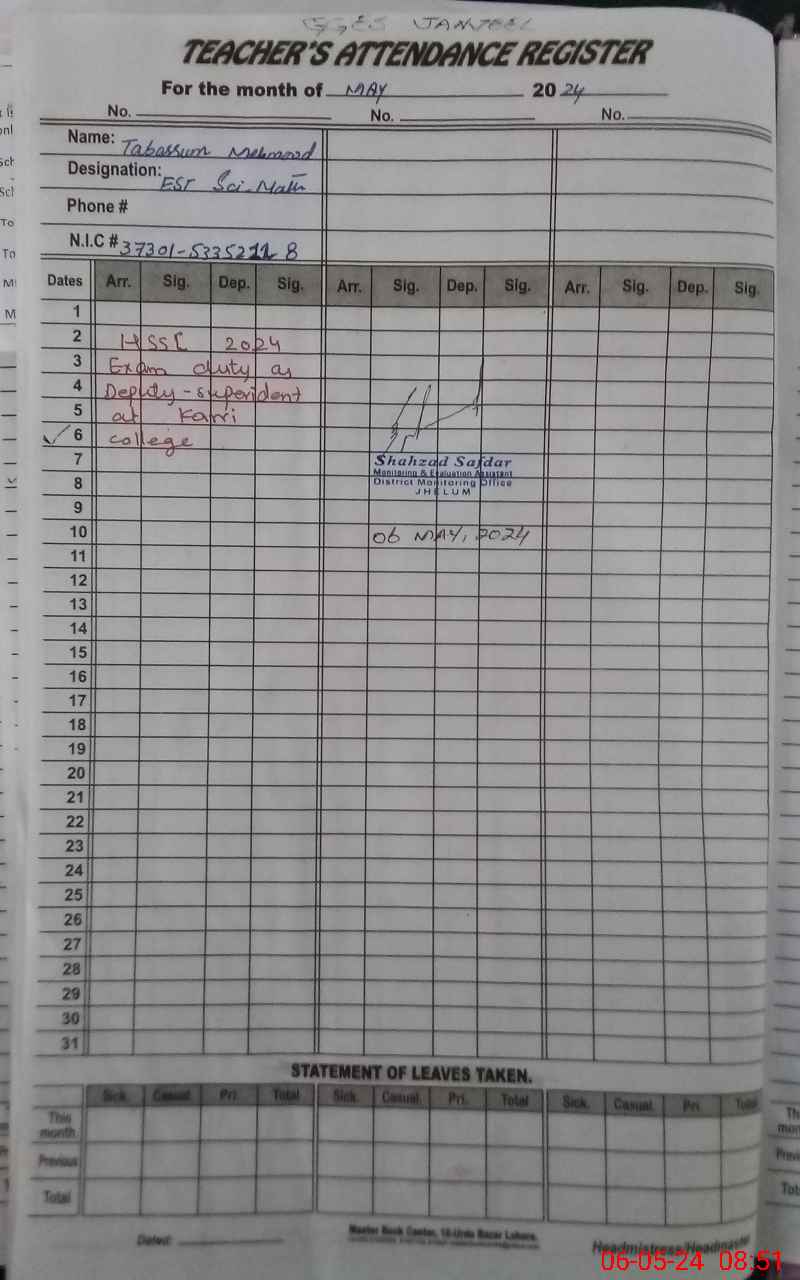 GGES JANJEEL
TEACHER'S ATTENDANCE REGISTER
For the month of MAY 2024
No. No. No.
Name: Tabassum Mehmood
Designation: EST Sci-Math
Phone #
N.I.C # 37301-5335211-8
Dates Arr. Sig. Dep. Sig. Arr. Sig. Dep. Sig. Arr. Sig. Dep. Sig.
1
2 HSSC 2024
3 Exam duty as
4 Deputy-superident
5 at Karri
6 college
7 Shahzad Safdar
Monitoring & Evaluation Assistant
8 District Monitoring Office
JHELUM
9
10 06 MAY, 2024
11
12
13
14
15
16
17
18
19
20
21
22
23
24
25
26
27
28
29
30
31
STATEMENT OF LEAVES TAKEN.
Sick. Casual. Pri. Total Sick. Casual. Pri. Total Sick. Casual. Pri. Total
This month
Previous
Total
Dated:
Master Book Center, 10-Urdu Bazar Lahore.
Headmistress/Headmaster
06-05-24 08:51